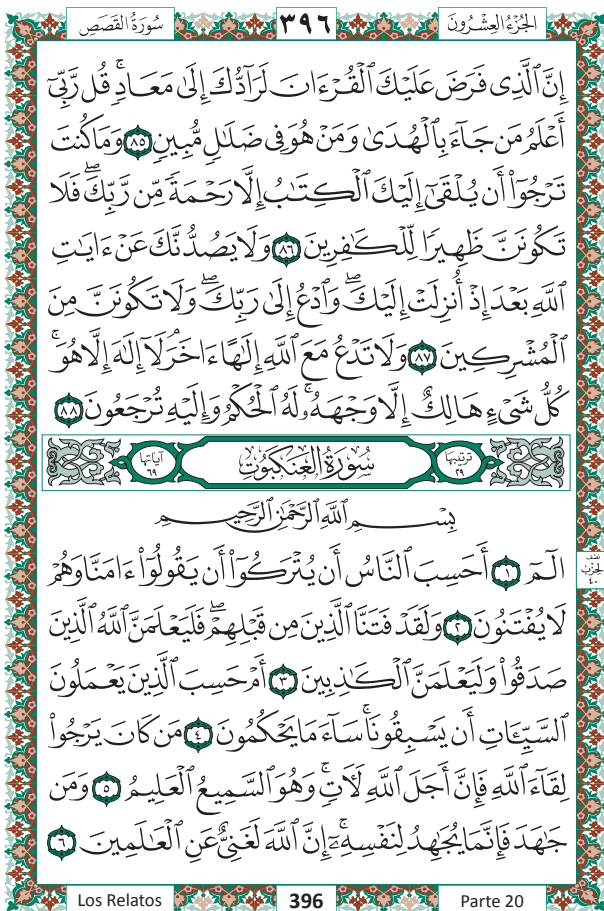 سُورَةُ القَصَصِ ٣٩٦ الجُزْءُ العِشْرُونَ
إِنَّ ٱلَّذِى فَرَضَ عَلَيْكَ ٱلْقُرْءَانَ لَرَآدُّكَ إِلَىٰ مَعَادٍۚ قُل رَّبِّىٓ
أَعْلَمُ مَن جَآءَ بِٱلْهُدَىٰ وَمَنْ هُوَ فِى ضَلَٰلٍ مُّبِينٍ ٨٥ وَمَا كُنتَ
تَرْجُوٓا۟ أَن يُلْقَىٰٓ إِلَيْكَ ٱلْكِتَٰبُ إِلَّا رَحْمَةً مِّن رَّبِّكَۖ فَلَا
تَكُونَنَّ ظَهِيرًا لِّلْكَٰفِرِينَ ٨٦ وَلَا يَصُدُّنَّكَ عَنْ ءَايَٰتِ
ٱللَّهِ بَعْدَ إِذْ أُنزِلَتْ إِلَيْكَۖ وَٱدْعُ إِلَىٰ رَبِّكَۖ وَلَا تَكُونَنَّ مِنَ
ٱلْمُشْرِكِينَ ٨٧ وَلَا تَدْعُ مَعَ ٱللَّهِ إِلَٰهًا ءَاخَرَۘ لَآ إِلَٰهَ إِلَّا هُوَۚ
كُلُّ شَىْءٍ هَالِكٌ إِلَّا وَجْهَهُۥۚ لَهُ ٱلْحُكْمُ وَإِلَيْهِ تُرْجَعُونَ ٨٨
ترتيبها ٢٩ سُورَةُ العَنكَبُوتِ آياتها ٦٩
بِسْمِ ٱللَّهِ ٱلرَّحْمَٰنِ ٱلرَّحِيمِ
الٓمٓ ١ أَحَسِبَ ٱلنَّاسُ أَن يُتْرَكُوٓا۟ أَن يَقُولُوٓا۟ ءَامَنَّا وَهُمْ
نصف الحزب ٤٠
لَا يُفْتَنُونَ ٢ وَلَقَدْ فَتَنَّا ٱلَّذِينَ مِن قَبْلِهِمْۖ فَلَيَعْلَمَنَّ ٱللَّهُ ٱلَّذِينَ
صَدَقُوا۟ وَلَيَعْلَمَنَّ ٱلْكَٰذِبِينَ ٣ أَمْ حَسِبَ ٱلَّذِينَ يَعْمَلُونَ
ٱلسَّيِّـَٔاتِ أَن يَسْبِقُونَاۚ سَآءَ مَا يَحْكُمُونَ ٤ مَن كَانَ يَرْجُوا۟
لِقَآءَ ٱللَّهِ فَإِنَّ أَجَلَ ٱللَّهِ لَـَٔاتٍۚ وَهُوَ ٱلسَّمِيعُ ٱلْعَلِيمُ ٥ وَمَن
جَٰهَدَ فَإِنَّمَا يُجَٰهِدُ لِنَفْسِهِۦٓۚ إِنَّ ٱللَّهَ لَغَنِىٌّ عَنِ ٱلْعَٰلَمِينَ ٦
Los Relatos 396 Parte 20